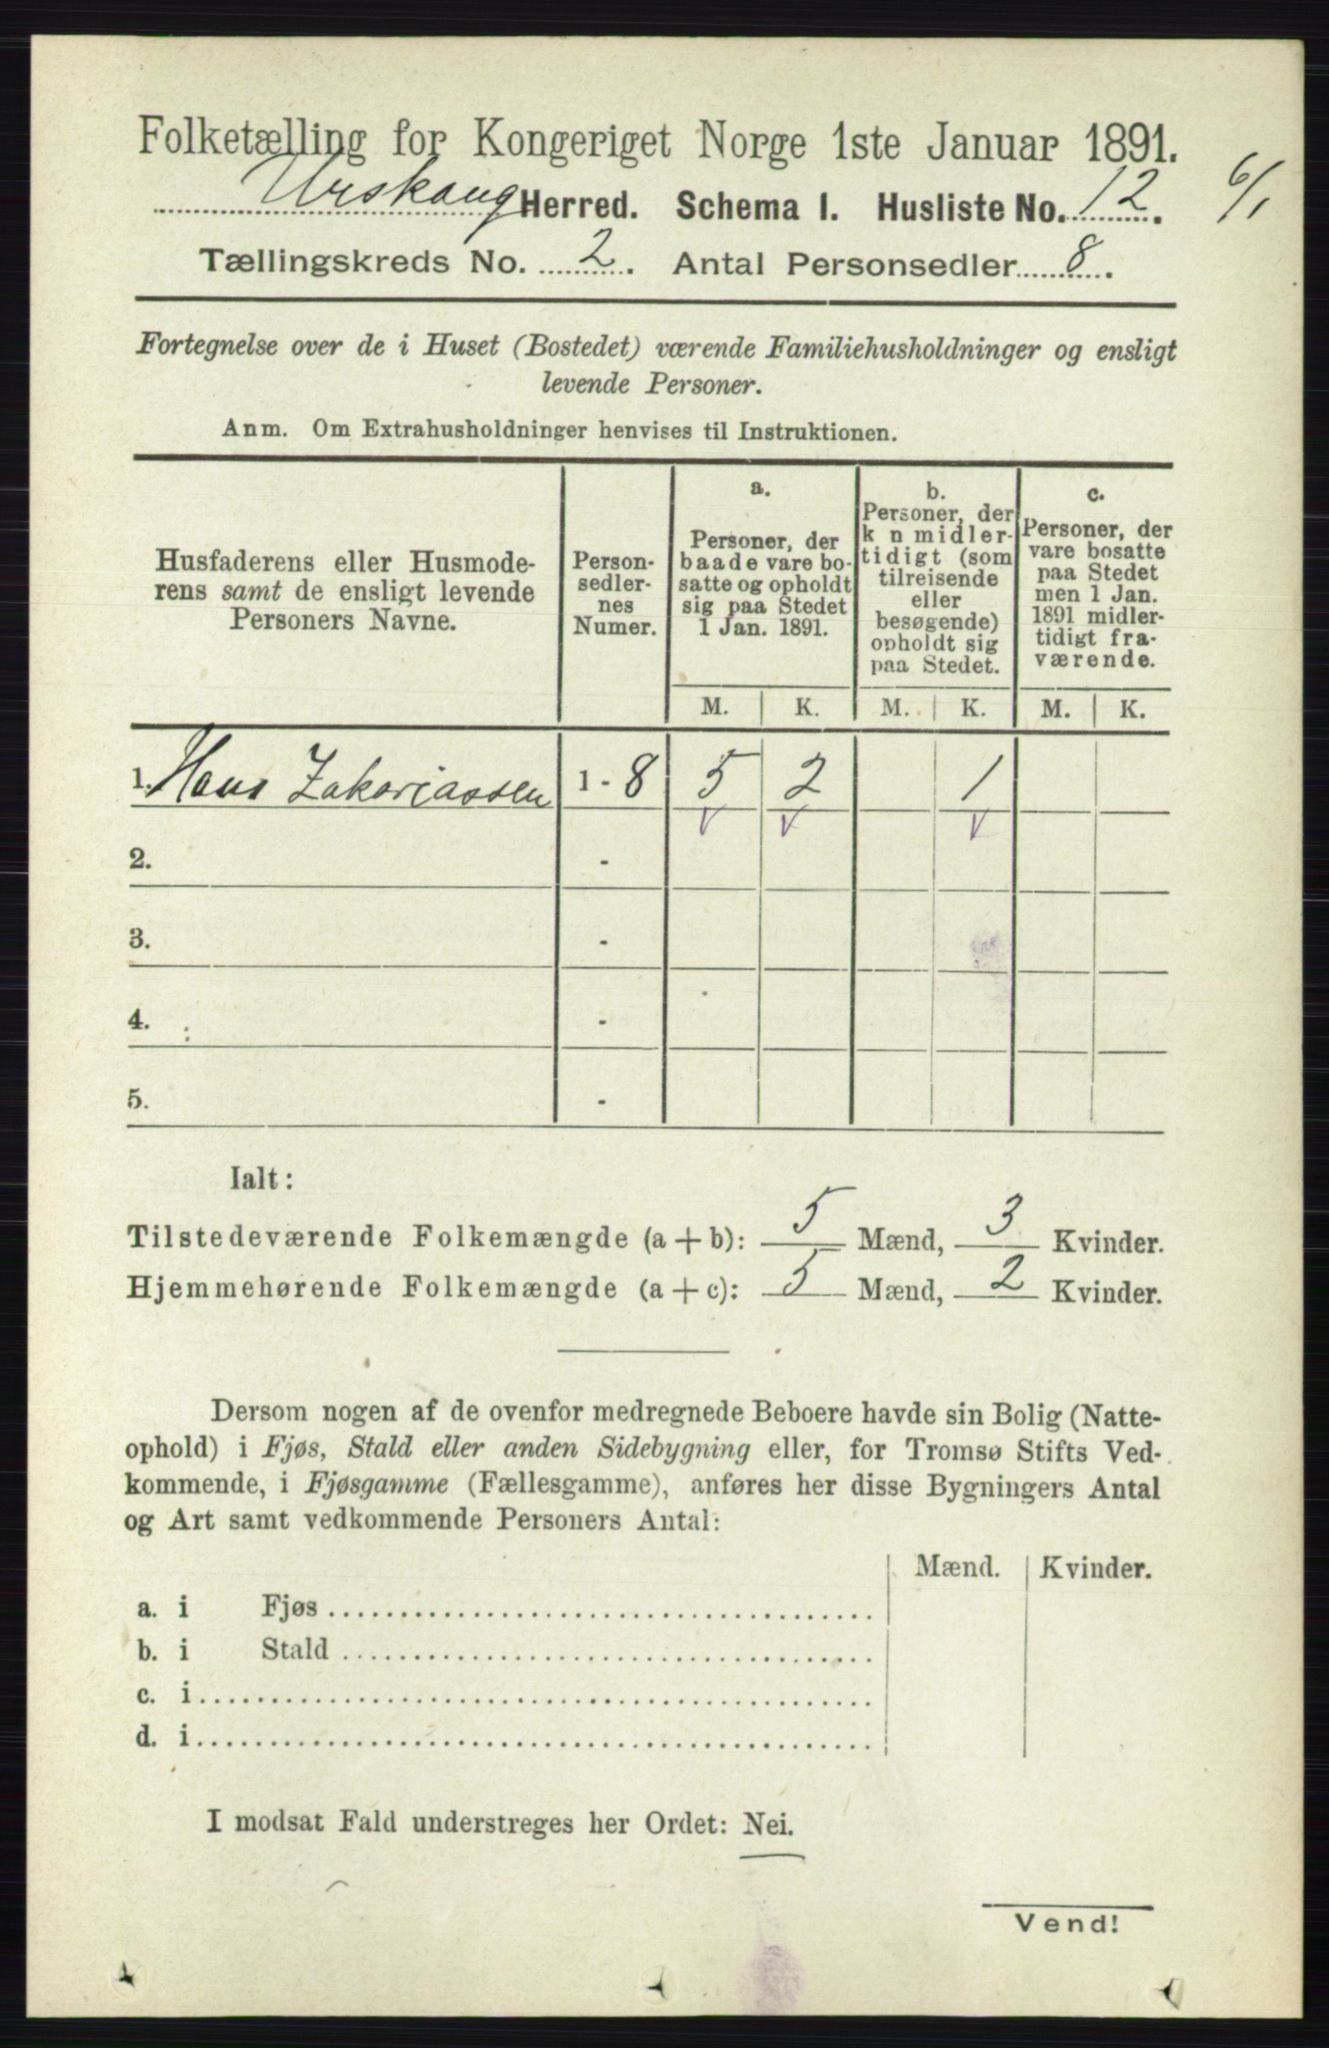 Folketælling for Kongeriget Norge 1ste Januar 1891.
Urskoug Herred. Schema 1. Husliste No. 12. 6/1
Tællingskreds No. 2. Antal Personsedler 8.
Fortegnelse over de i Huset (Bostedet) værende Familiehusholdninger og ensligt
levende Personer.
Anm. Om Extrahusholdninger henvises til Instruktionen.
Husfaderens eller Husmode-
rens samt de ensligt levende
Personers Navne.
Person-
sedler-
nes
Numer.
a.
Personer, der
baade vare bo-
satte og opholdt
sig paa Stedet
1 Jan. 1891.
b.
Personer, der
k n midler-
tidigt (som
tilreisende
eller
besøgende)
opholdt sig
paa Stedet.
c.
Personer, der
vare bosatte
paa Stedet
men 1 Jan.
1891 midler-
tidigt fra-
værende.
M. K. M. K. M. K.
1. Hans Zakariassen 1 - 8 5 2 1
2. -
3. -
4. -
5. -
Ialt:
Tilstedeværende Folkemængde (a + b): 5 Mænd, 3 Kvinder.
Hjemmehørende Folkemængde (a + c): 5 Mænd, 2 Kvinder.
Dersom nogen af de ovenfor medregnede Beboere havde sin Bolig (Natte-
ophold) i Fjøs, Stald eller anden Sidebygning eller, for Tromsø Stifts Ved-
kommende, i Fjøsgamme (Fællesgamme), anføres her disse Bygningers Antal
og Art samt vedkommende Personers Antal:
Mænd. Kvinder.
a. i Fjøs
b. i Stald
c. i
d. i
I modsat Fald understreges her Ordet: Nei.
Vend!